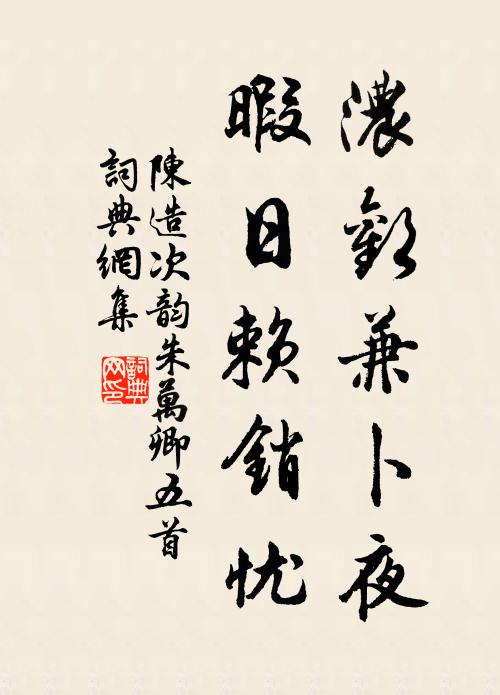 濃歡兼卜夜
暇日賴銷忧
陳造次韵朱萬卿五首
詞典網集
詞典
网印